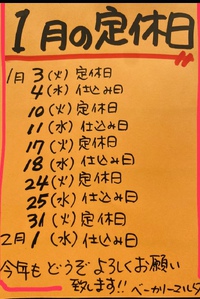 1月の定休日
1月 3 (火) 定休日
4 (水) 仕込み日
10 (火) 定休日
11 (水) 仕込み日
17 (火) 定休日
18 (水) 仕込み日
24 (火) 定休日
25 (水) 仕込み日
31 (火) 定休日
2月 1 (水) 仕込み日
今年も どうぞ よろしくお願い
致します!! ベーカリー